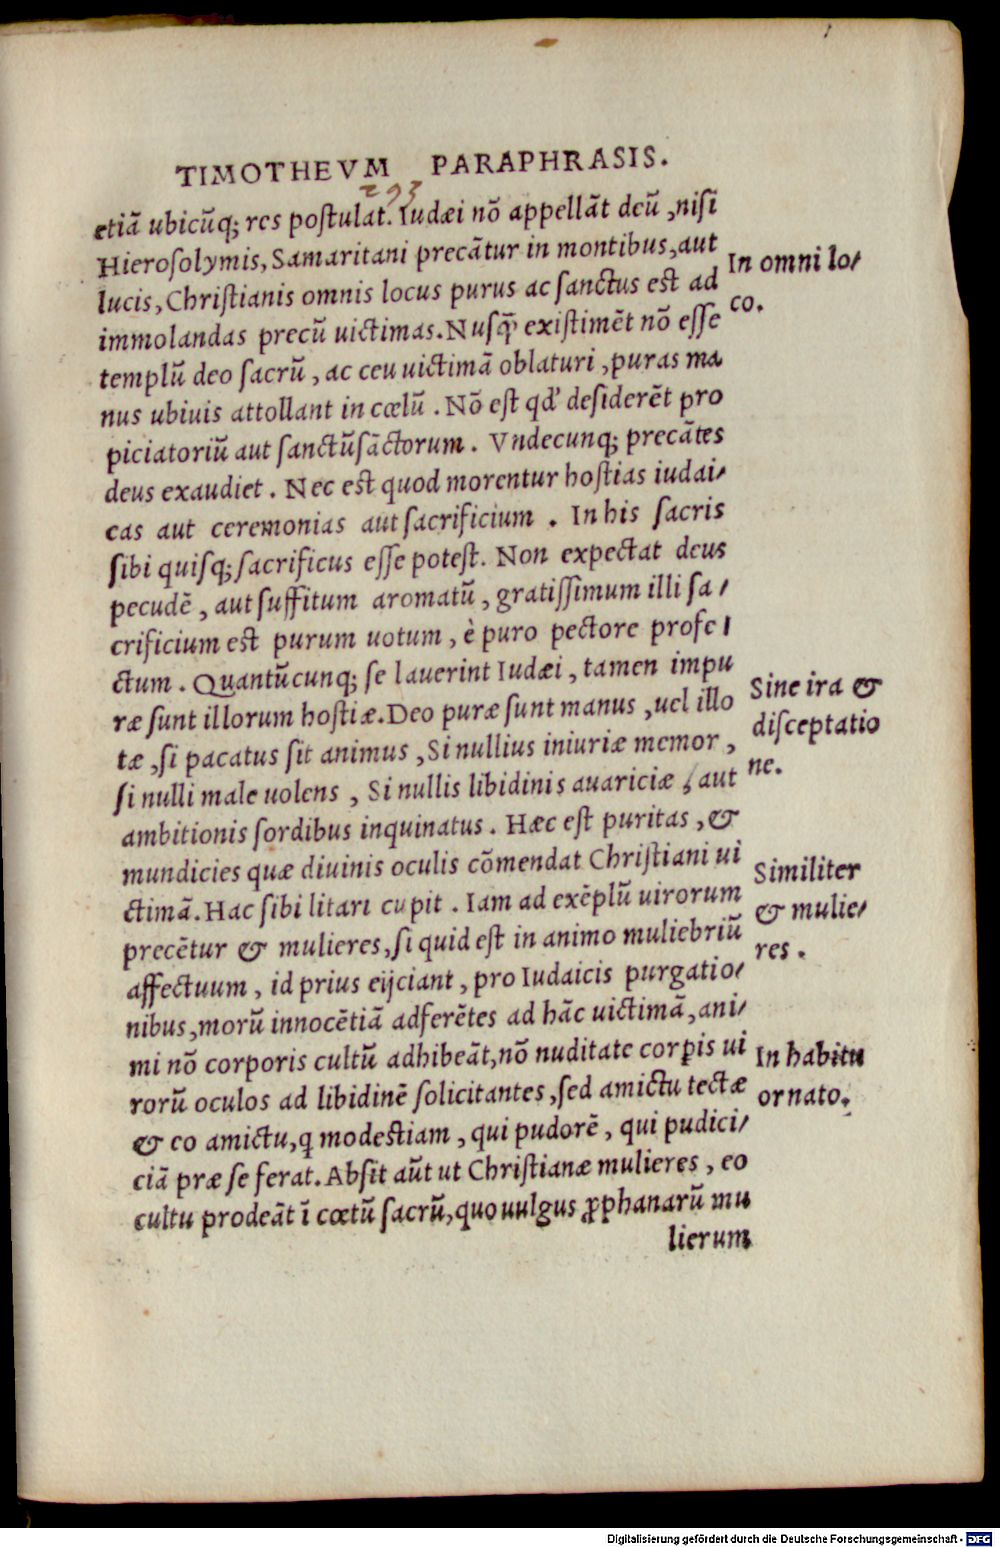 TIMOTHEVM PARAPHRASIS.
293
etiā ubicūq; res postulat. Iudæi nō appellāt deū, nisi
Hierosolymis, Samaritani precātur in montibus, aut
lucis, Christianis omnis locus purus ac sanctus est ad
immolandas precū uictimas. Nusq̄ existimēt nō esse
templū deo sacrū, ac ceu uictimā oblaturi, puras ma
nus ubiuis attollant in cœlū. Nō est qd' desiderēt pro
piciatoriū aut sanctūsāctorum. Vndecunq; precātes
deus exaudiet. Nec est quod morentur hostias iudai/
cas aut ceremonias aut sacrificium. In his sacris
sibi quisq; sacrificus esse potest. Non expectat deus
pecudē, aut suffitum aromatū, gratissimum illi sa/
crificium est purum uotum, è puro pectore profe/
ctum. Quantūcunq; se lauerint Iudæi, tamen impu
ræ sunt illorum hostiæ. Deo puræ sunt manus, uel illo
tæ, si pacatus sit animus, Si nullius iniuriæ memor,
si nulli male uolens, Si nullis libidinis auariciæ, aut
ambitionis sordibus inquinatus. Hæc est puritas, &
mundicies quæ diuinis oculis cōmendat Christiani ui
ctimā. Hac sibi litari cupit. Iam ad exēplū uirorum
precētur & mulieres, si quid est in animo muliebriū
affectuum, id prius eijciant, pro Iudaicis purgatio/
nibus, morū innocētiā adferētes ad hāc uictimā, ani/
mi nō corporis cultū adhibeāt, nō nuditate corꝑis ui
rorū oculos ad libidinē solicitantes, sed amictu tectæ
& eo amictu, q modestiam, qui pudorē, qui pudici/
ciā præ se ferat. Absit aūt ut Christianæ mulieres, eo
cultu prodeāt ī cœtū sacrū, quo uulgus ꝓphanarū mu
lierum
In omni lo/
co.
Sine ira &
disceptatio
ne.
Similiter
& mulie/
res.
In habitu
ornato.
Digitalisierung gefördert durch die Deutsche Forschungsgemeinschaft - DFG